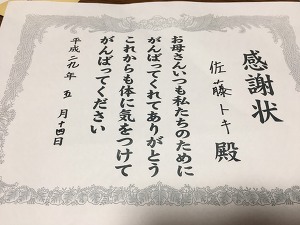 感謝状
佐藤トキ殿
お母さんいつも私たちのために
がんばってくれてありがとう
これからも体に気をつけて
がんばってください
平成二九年 五 月十四日